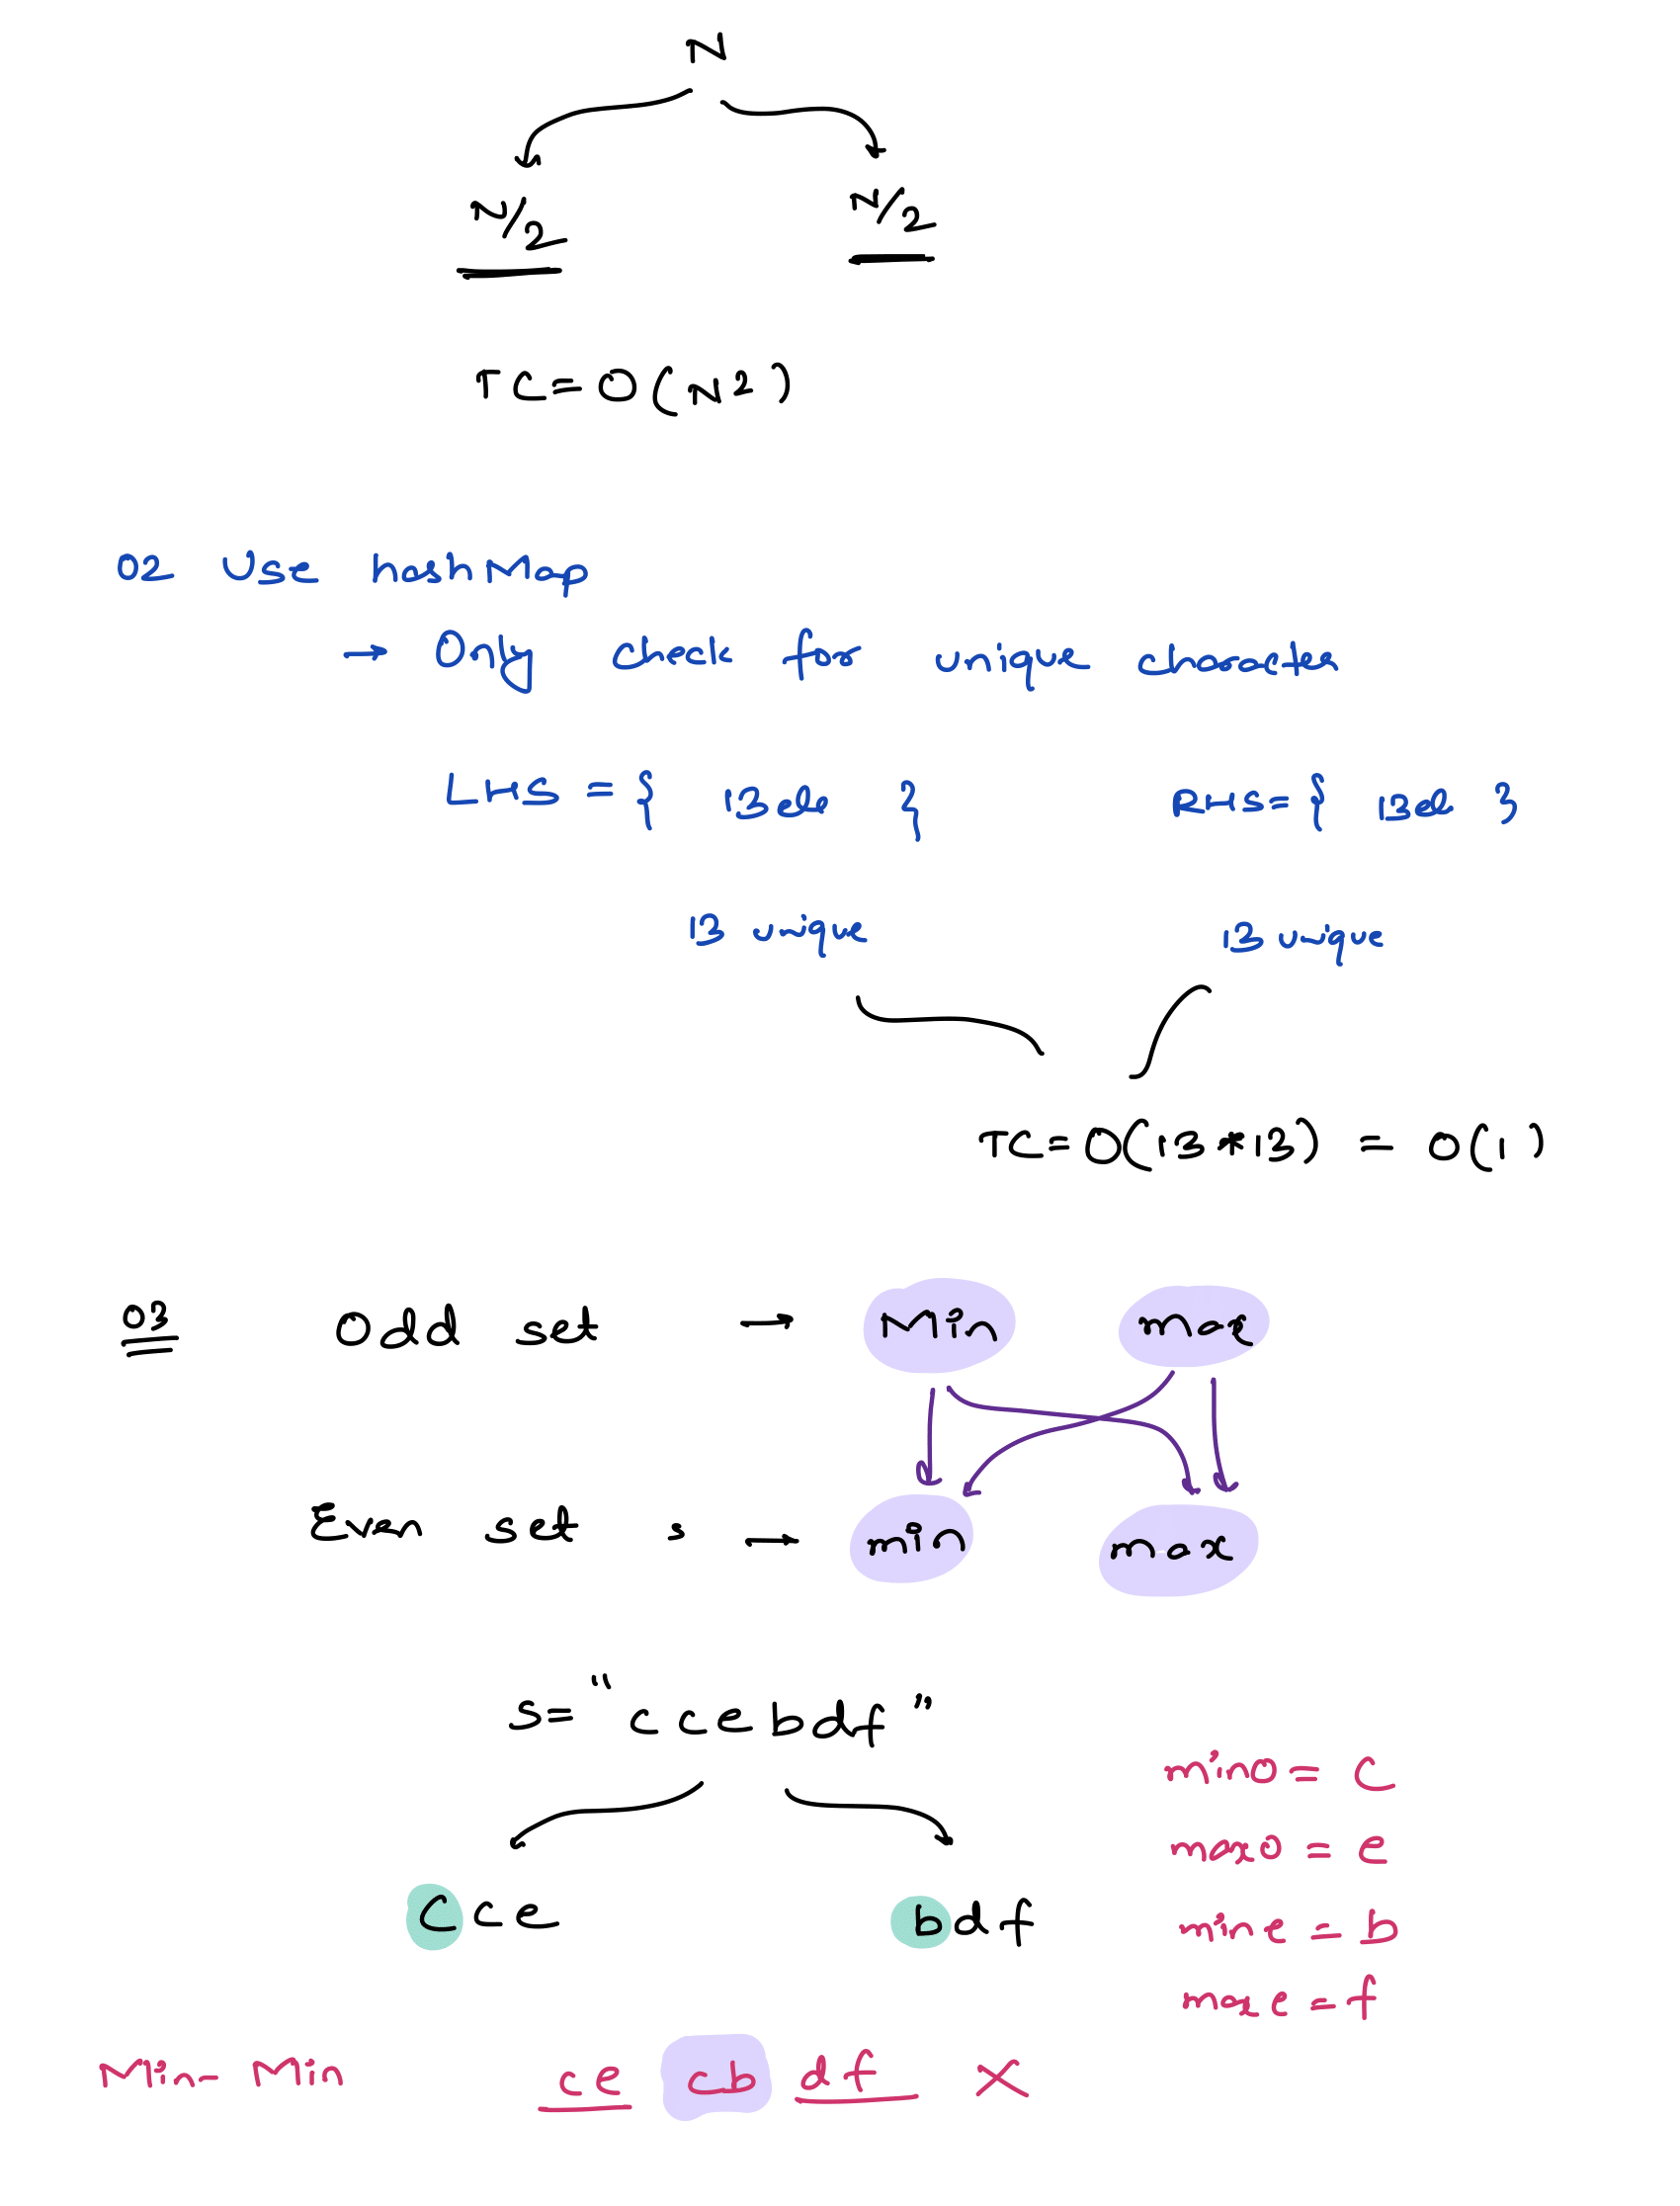 N
N/2 N/2
TC = O(N2)
02 Use hashMap
→ Only check for unique character
LHS = { 13 ele } RHS = { 13 el }
13 unique 13 unique
TC = O(13*13) = O(1)
03 Odd set → Min max
Even set s → min max
s= "ccebdf"
mino = c
maxo = e
cce bdf
mine = b
maxe = f
Min- Min ce cb df X